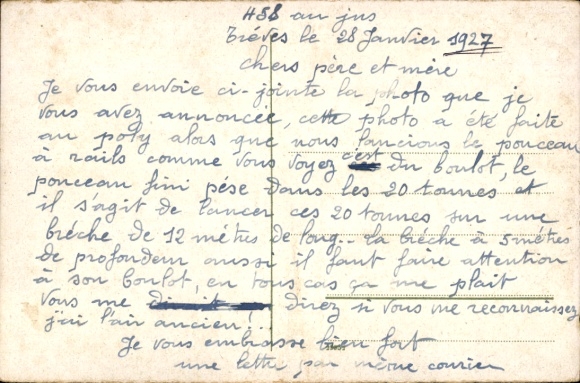 458 au jus
Trèves le 28 Janvier 1927
chers père et mère
Je vous envoie ci-jointe la photo que je
vous avez annoncée, cette photo a été faite
au poly alors que nous lancions le ponceau
à rails comme vous voyez c'est du boulot, le
ponceau fini pése dans les 20 tonnes et
il s'agit de lancer ces 20 tonnes sur une
bréche de 12 métres de long.. la bréche à 5 métrés
de profondeur aussi il faut faire attention
à son boulot, en tous cas ça me plait
Vous me direz si vous me reconnaissez
j'ai l'air ancien!...
Je vous embrasse bien fort
une lettre par même courier